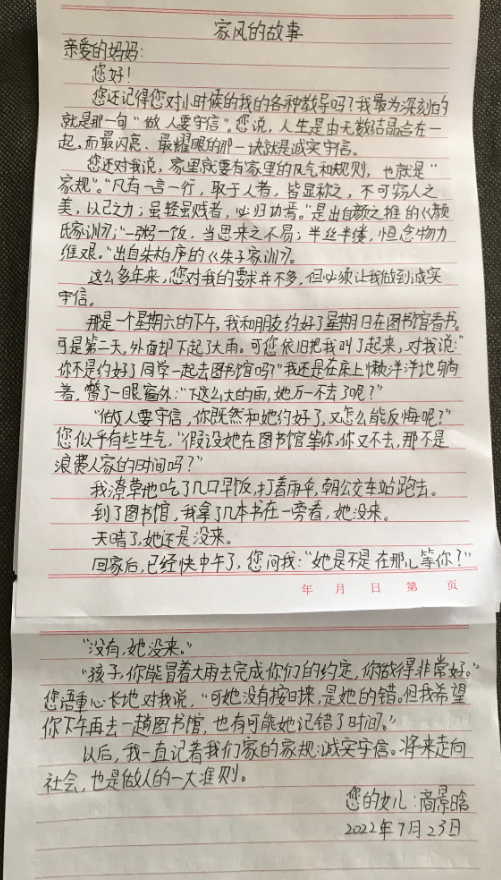 家风的故事
亲爱的妈妈:
您好!
您还记得您对小时候的我的各种教导吗?我最为深刻的
就是那一句“做人要守信”。您说,人生是由无数结晶合在一
起,而最闪亮、最耀眼的那一块就是诚实守信。
您还对我说,家里就要有家里的风气和规则,也就是“
家规”。“凡有一言一行,取于人者,皆显称之,不可窃人之
美,以己之力;虽轻虽贱者,必归功焉。”是出自颜之推的《颜
氏家训》;“一粥一饭,当思来之不易;半丝半缕,恒念物力
维艰。”出自朱柏庐的《朱子家训》。
这么多年来,您对我的要求并不多,但必须让我做到诚实
守信。
那是一个星期六的下午,我和朋友约好了星期日在图书馆看书。
可是第二天,外面却下起了大雨。可您依旧把我叫了起来,对我说:“
你不是约好了同学一起去图书馆吗?”我还是在床上懒洋洋地躺
着,瞥了一眼窗外:“下这么大的雨,她万一不去了呢?”
“做人要守信,你既然和她约好了,又怎么能反悔呢?”
您似乎有些生气,“假设她在图书馆等你,你又不去,那不是
浪费人家的时间吗?”
我潦草地吃了几口早饭,打着雨伞,朝公交车站跑去。
到了图书馆,我拿了几本书在一旁看,她没来。
天晴了,她还是没来。
回家后,已经快中午了,您问我:“她是不是在那儿等你?”
年 月 日 第 页
“没有,她没来。”
“孩子,你能冒着大雨去完成你们的约定,你做得非常好。”
您语重心长地对我说,“可她没有按时来,是她的错。但我希望
你下午再去一趟图书馆,也有可能她记错了时间。”
以后,我一直记着我们家的家规:诚实守信。将来走向
社会,也是做人的一大准则。
您的女儿:商景晗
2022年7月23日